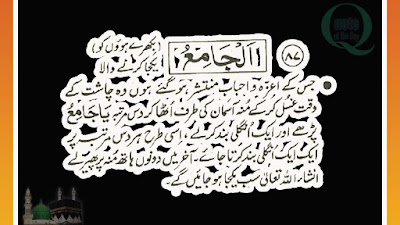 Quote
of the Day
۸۷
اَلْجَامِعُ
(بکھرے ہوؤں کو)
یکجا کرنے والا
جس کے اعزہ و احباب منتشر ہو گئے ہوں وہ چاشت کے
وقت غسل کر کے مُنہ آسمان کی طرف اُٹھا کر دس مرتبہ یَا جَامِعُ
پڑھے اور ایک اُنگلی بند کر لے، اسی طرح ہر دس مرتبہ پر
ایک ایک اُنگلی بند کرتا جائے۔ آخر میں دونوں ہاتھ مُنہ پر پھیر لے
انشاء اللہ تعالیٰ سب یکجا ہو جائیں گے۔